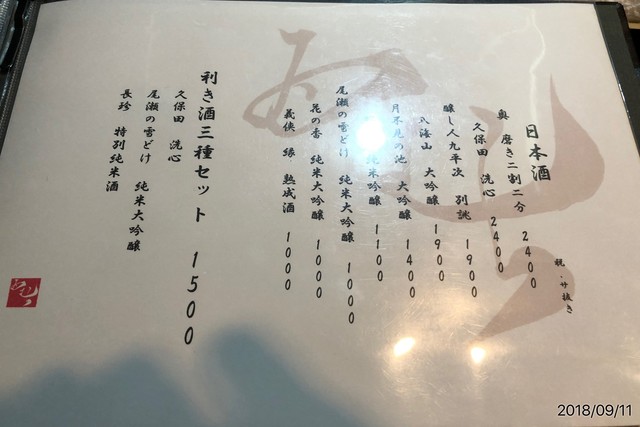 日本酒
税・サ抜き
奥 磨き二割二分 2400
久保田 洗心 2400
醸し人九平次 別誂 1900
八海山 大吟醸 1900
月不見の池 大吟醸 1400
純米大吟醸 1100
尾瀬の雪どけ 純米大吟醸 1000
花の香 純米大吟醸 1000
義侠 縁 熟成酒 1000
利き酒三種セット 1500
久保田 洗心
尾瀬の雪どけ 純米大吟醸
長珍 特別純米酒
2018/09/11